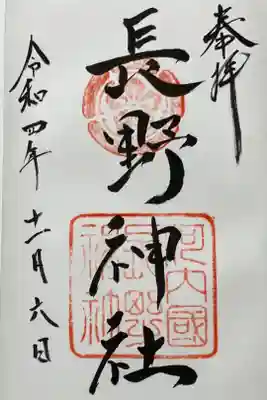 奉拝
長野神社
河内國
長野
神社
令和四年 十一月六日